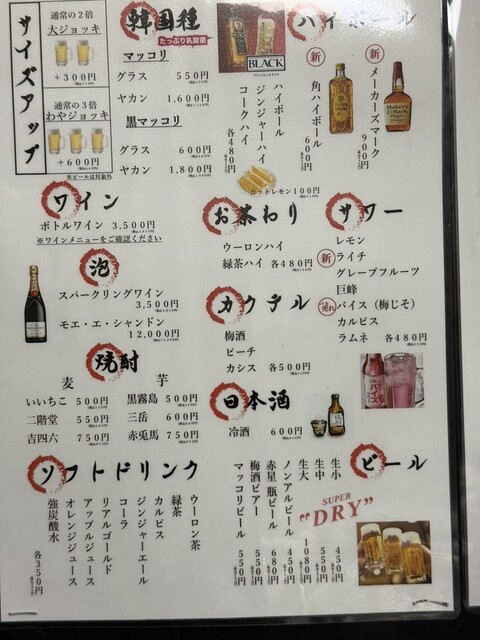 サイズアップ
通常の2倍
大ジョッキ
+300円
通常の3倍
わやジョッキ
+600円
※ビールは対象外
韓国種
たっぷり乳酸菌
マッコリ
グラス 550円
ヤカン 1,600円
黒マッコリ
グラス 600円
ヤカン 1,800円
BLACK
ハイボール
ジンジャーハイ
コークハイ
各480円
ハイボール
新 角ハイボール 600円
新 メーカーズマーク 900円
カットレモン100円
ワイン
ボトルワイン 3,500円
※ワインメニューをご確認ください
泡
スパークリングワイン
3,500円
モエ・エ・シャンドン
12,000円
焼酎
麦
いいちこ 500円
二階堂 550円
吉四六 750円
芋
黒霧島 500円
三岳 600円
赤兎馬 750円
お茶わり
ウーロンハイ
緑茶ハイ 各480円
カクテル
梅酒
ピーチ
カシス 各500円
日本酒
冷酒 600円
サワー
レモン
新 ライチ
グレープフルーツ
巨峰
バイス（梅じそ）
カルピス
ラムネ 各480円
バイス
ソフトドリンク
ウーロン茶
緑茶
カルピス
ジンジャーエール
コーラ
リアルゴールド
アップルジュース
オレンジジュース
強炭酸水
各350円
ビール
生小 450円
生中 550円
生大 1080円
ノンアルビール 450円
赤星 瓶ビール 680円
梅酒ビアー 550円
マッコリビール 550円
SUPER
"DRY"